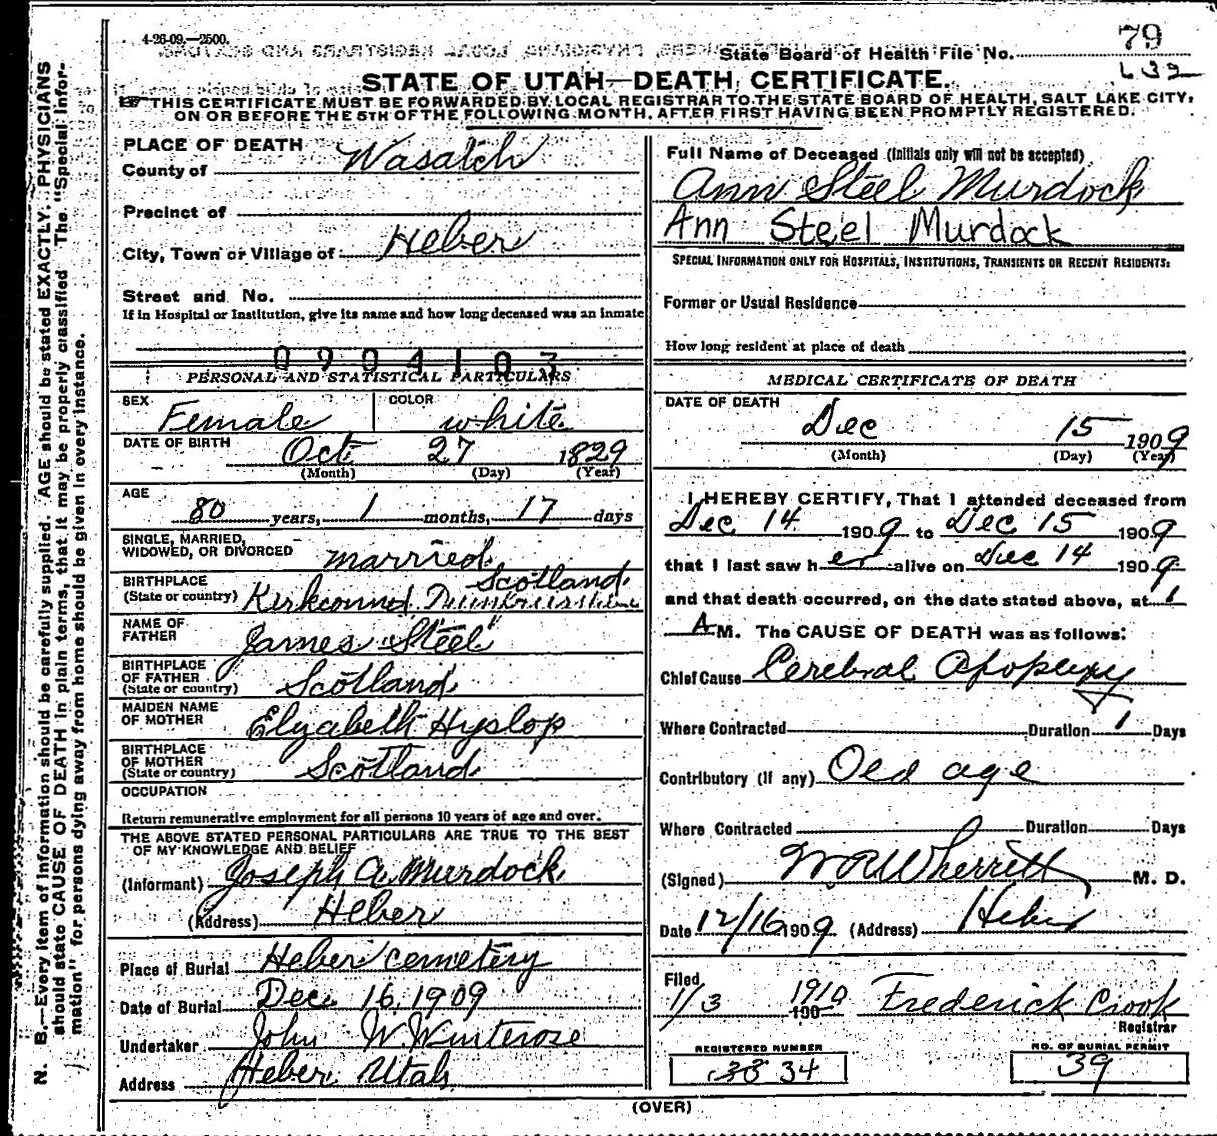 4-26-09.—2500.
State Board of Health File No. 79
632
STATE OF UTAH—DEATH CERTIFICATE.
THIS CERTIFICATE MUST BE FORWARDED BY LOCAL REGISTRAR TO THE STATE BOARD OF HEALTH, SALT LAKE CITY,
ON OR BEFORE THE 5TH OF THE FOLLOWING MONTH, AFTER FIRST HAVING BEEN PROMPTLY REGISTERED.
N. B.—Every item of information should be carefully supplied. AGE should be stated EXACTLY. PHYSICIANS
should state CAUSE OF DEATH in plain terms, that it may be properly classified. The "Special Infor-
mation" for persons dying away from home should be given in every instance.
PLACE OF DEATH
County of Wasatch
Precinct of
City, Town or Village of Heber
Street and No.
If in Hospital or Institution, give its name and how long deceased was an inmate
0904103
PERSONAL AND STATISTICAL PARTICULARS
SEX Female COLOR white
DATE OF BIRTH Oct 27 1829
(Month) (Day) (Year)
AGE
80 years, 1 months, 17 days
SINGLE, MARRIED,
WIDOWED, OR DIVORCED married
BIRTHPLACE Scotland
(State or country)
NAME OF
FATHER James Steel
BIRTHPLACE
OF FATHER
(State or country) Scotland
MAIDEN NAME
OF MOTHER Elyzabeth Hyslop
BIRTHPLACE
OF MOTHER
(State or country) Scotland
OCCUPATION
Return remunerative employment for all persons 10 years of age and over.
THE ABOVE STATED PERSONAL PARTICULARS ARE TRUE TO THE BEST
OF MY KNOWLEDGE AND BELIEF
(Informant) Joseph A. Murdock
(Address) Heber
Place of Burial Heber cemetery
Date of Burial Dec. 16, 1909
Undertaker John W. Winterose
Address Heber Utah
Full Name of Deceased (Initials only will not be accepted)
Ann Steel Murdock
Ann Steel Murdock
SPECIAL INFORMATION ONLY FOR HOSPITALS, INSTITUTIONS, TRANSIENTS OR RECENT RESIDENTS:
Former or Usual Residence
How long resident at place of death
MEDICAL CERTIFICATE OF DEATH
DATE OF DEATH
Dec 15 1909
(Month) (Day) (Year)
I HEREBY CERTIFY, That I attended deceased from
Dec 14 1909 to Dec 15 1909
that I last saw her alive on Dec 14 1909
and that death occurred, on the date stated above, at 1
A M. The CAUSE OF DEATH was as follows:
Chief Cause Cerebral Apoplexy
Where Contracted Duration 1 Days
Contributory (if any) Old age
Where Contracted Duration Days
(Signed) W R Wherritt M. D.
Date 12/16 1909 (Address) Heber
Filed
1/3 1910 190 Frederick Crook
Registrar
REGISTERED NUMBER
38 34
NO. OF BURIAL PERMIT
39
(OVER)